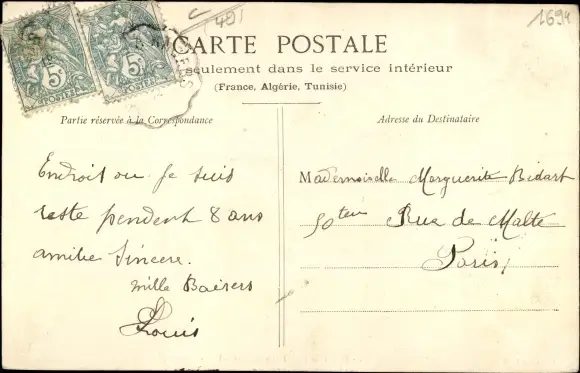 1694
40
CARTE POSTALE
seulement dans le service intérieur
(France, Algérie, Tunisie)
5c
5c
POSTES
POSTES
Partie réservée à la Correspondance
Adresse du Destinataire
Endroit ou Je suis
reste pendent 8 ans
amitie Sincere.
Mille Baisers
Louis
Mademoiselle Marguerite Bidart
50 ter Rue de Malte
Paris